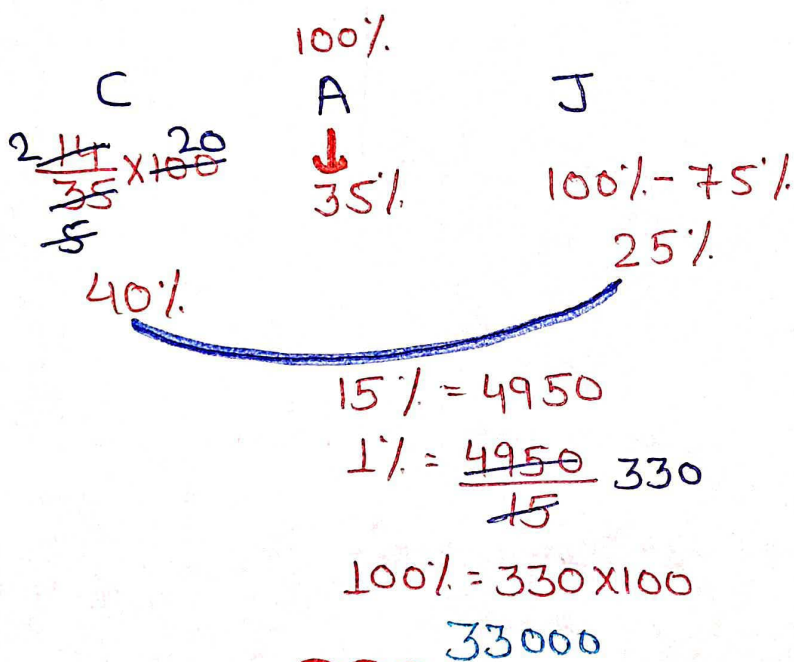 100%
C A J
2 14/35 × 100 20
5
35%
100% - 75%
25%
40%
15% = 4950
1% = 4950/15 330
100% = 330 X 100
33000